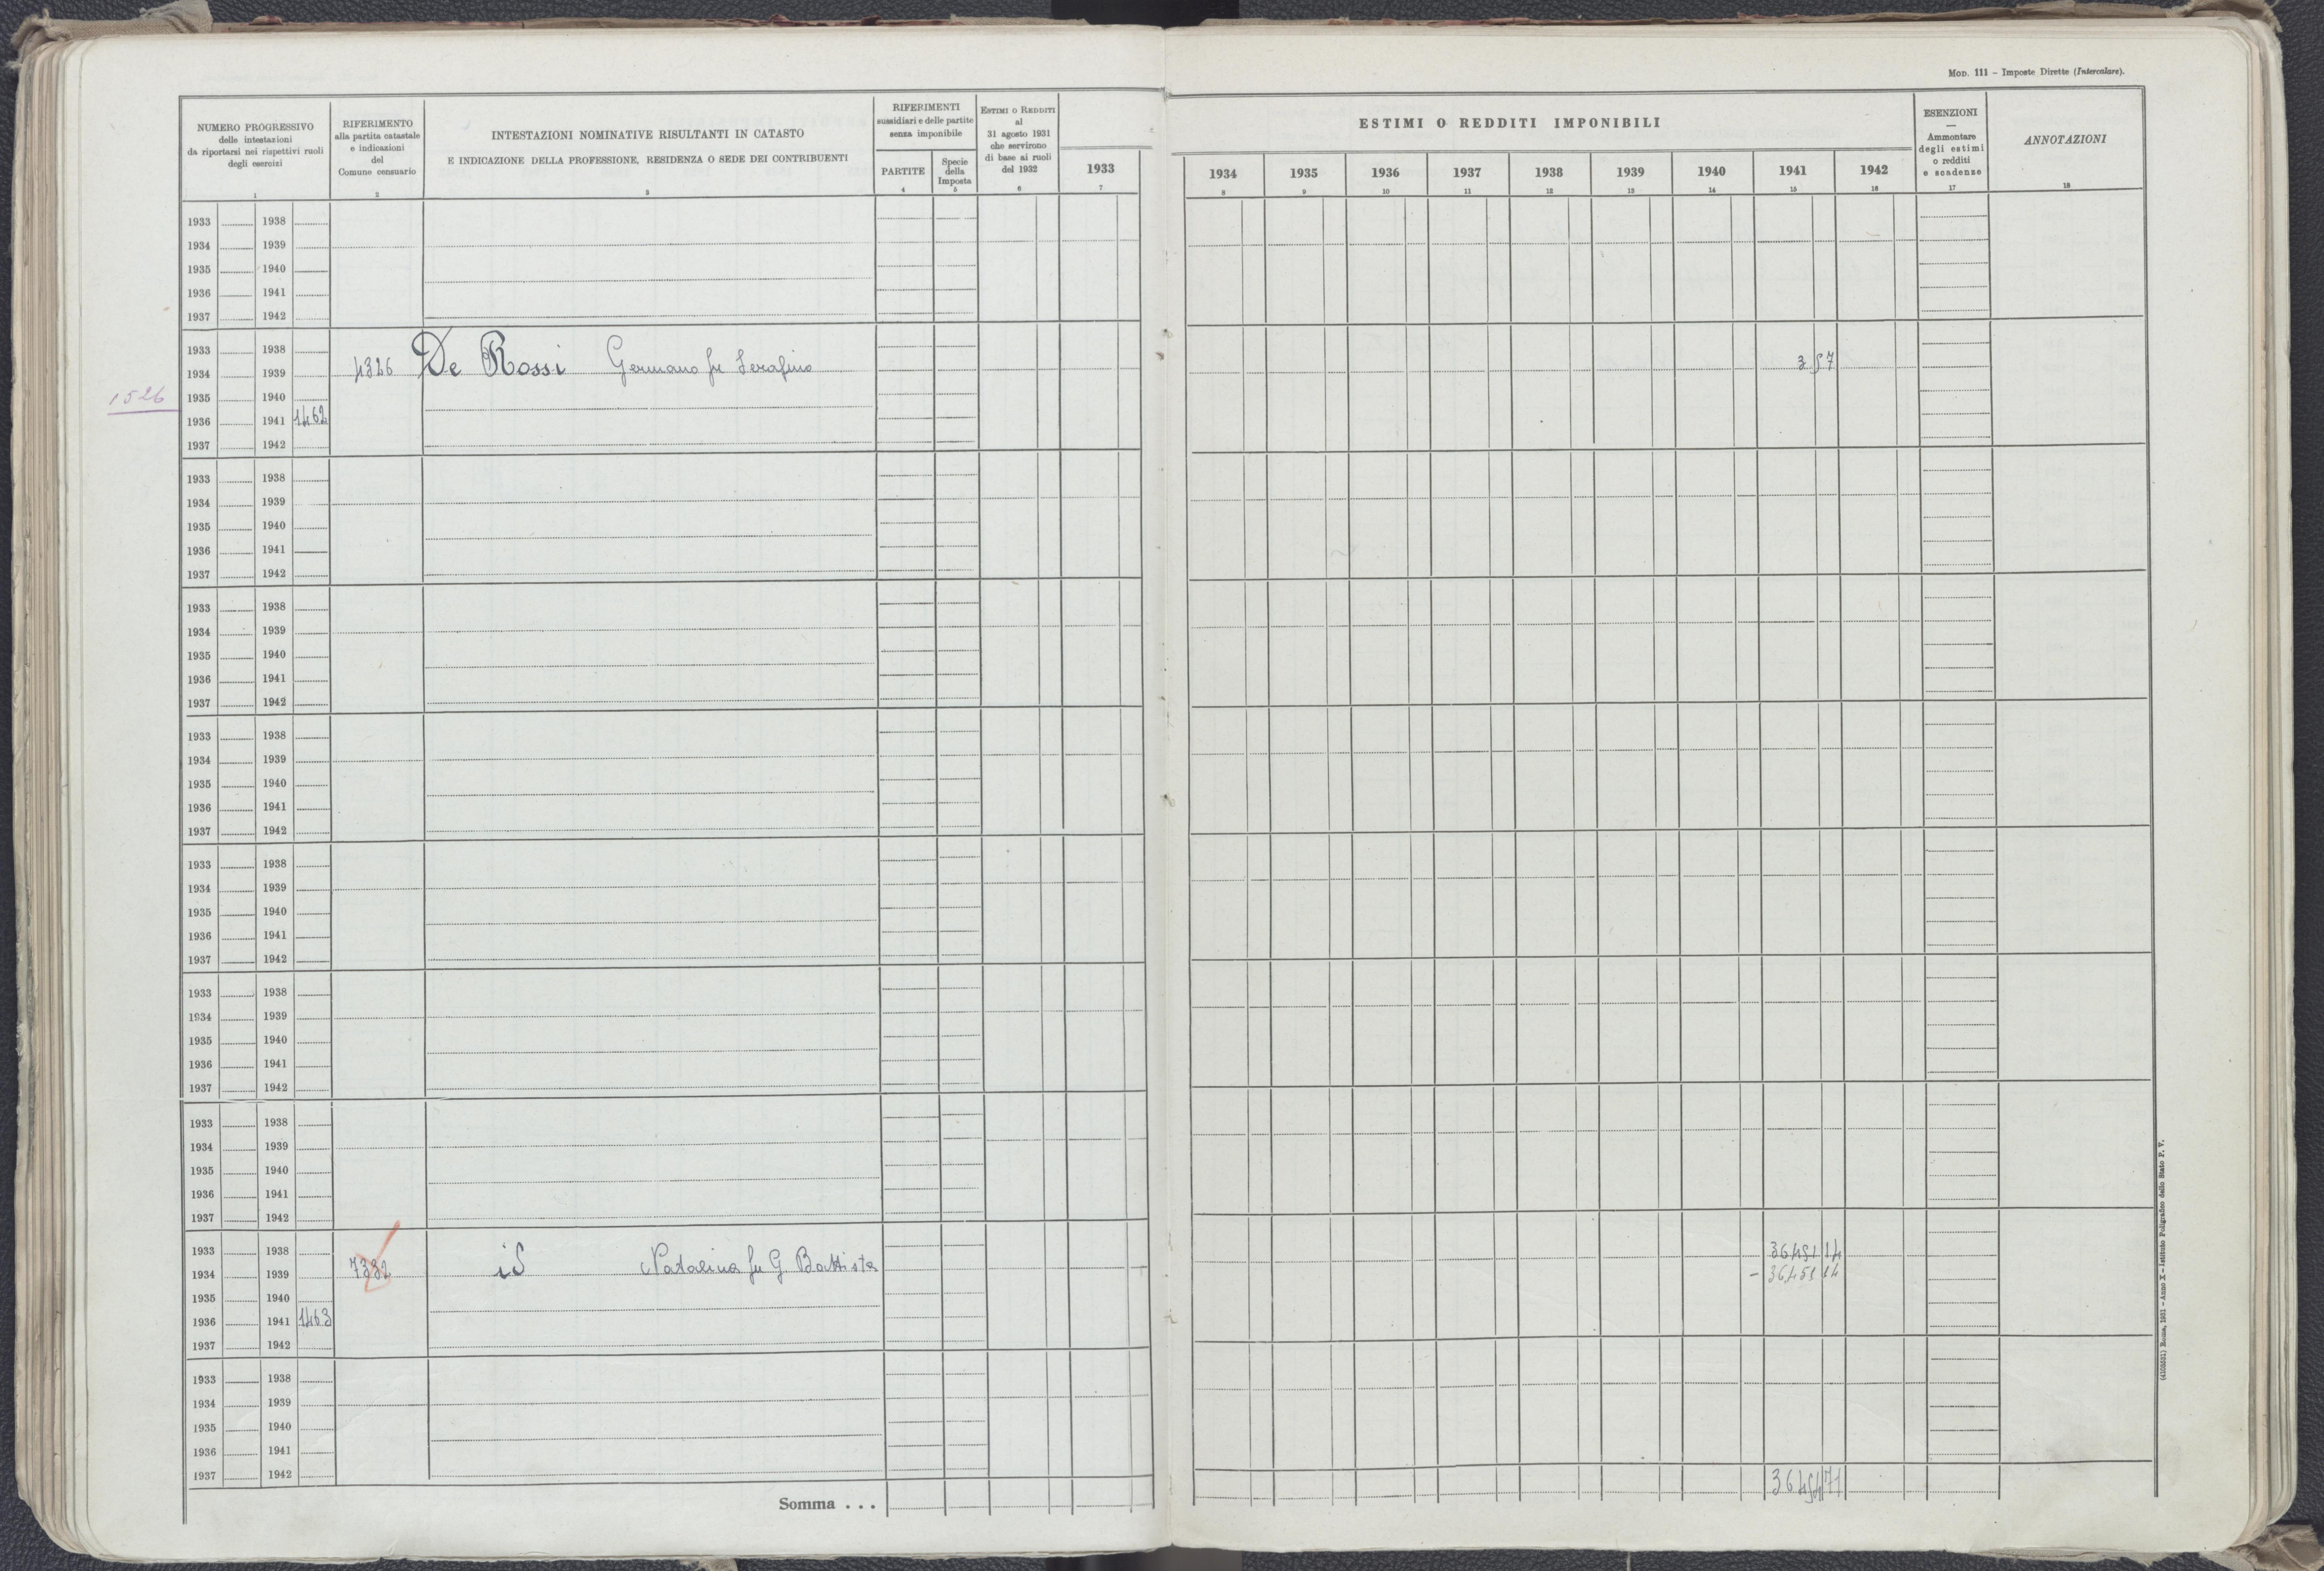 MOD. 111 – Imposte Dirette (Intercalare).
NUMERO PROGRESSIVO
delle intestazioni
da riportarsi nei rispettivi ruoli
degli esercizi
1
RIFERIMENTO
alla partita catastale
e indicazioni
del
Comune censuario
2
INTESTAZIONI NOMINATIVE RISULTANTI IN CATASTO
E INDICAZIONE DELLA PROFESSIONE, RESIDENZA O SEDE DEI CONTRIBUENTI
3
RIFERIMENTI
sussidiari e delle partite
senza imponibile
PARTITE
4
Specie
della
Imposta
5
ESTIMI O REDDITI
al
31 agosto 1931
che servirono
di base ai ruoli
del 1932
6
1933
7
ESTIMI O REDDITI IMPONIBILI
1934 1935 1936 1937 1938 1939 1940 1941 1942
8 9 10 11 12 13 14 15 16
ESENZIONI
—
Ammontare
degli estimi
o redditi
e scadenze
17
ANNOTAZIONI
18
1933 1938
1934 1939
1935 1940
1936 1941
1937 1942
1933 1938
1934 1939 4326 De Rossi Germano fu Serafino 3 57
1526
1935 1940
1936 1941 1462
1937 1942
1933 1938
1934 1939
1935 1940
1936 1941
1937 1942
1933 1938
1934 1939
1935 1940
1936 1941
1937 1942
1933 1938
1934 1939
1935 1940
1936 1941
1937 1942
1933 1938
1934 1939
1935 1940
1936 1941
1937 1942
1933 1938
1934 1939
1935 1940
1936 1941
1937 1942
1933 1938
1934 1939
1935 1940
1936 1941
1937 1942
1933 1938 36451 14
1934 1939 7332 id Natalina fu G. Battista - 36451 14
1935 1940
1936 1941 1463
1937 1942
1933 1938
1934 1939
1935 1940
1936 1941
1937 1942
Somma . . . 36454 71
(4103631) Roma, 1931 – Anno X – Istituto Poligrafico dello Stato P. V.